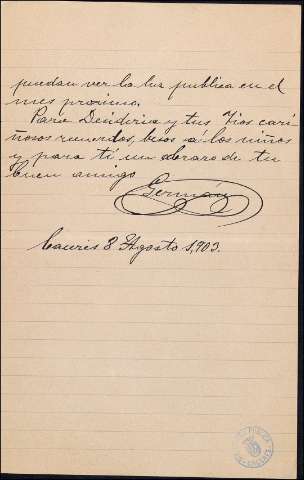 puedan ver la luz publica en el
mes proximo.
Para Desideria y tus Tios cari
ñosos recuerdos, besos á los niños
y para ti un abrazo de tu
buen amigo
Germán
Caures 8 Agosto 1,903.